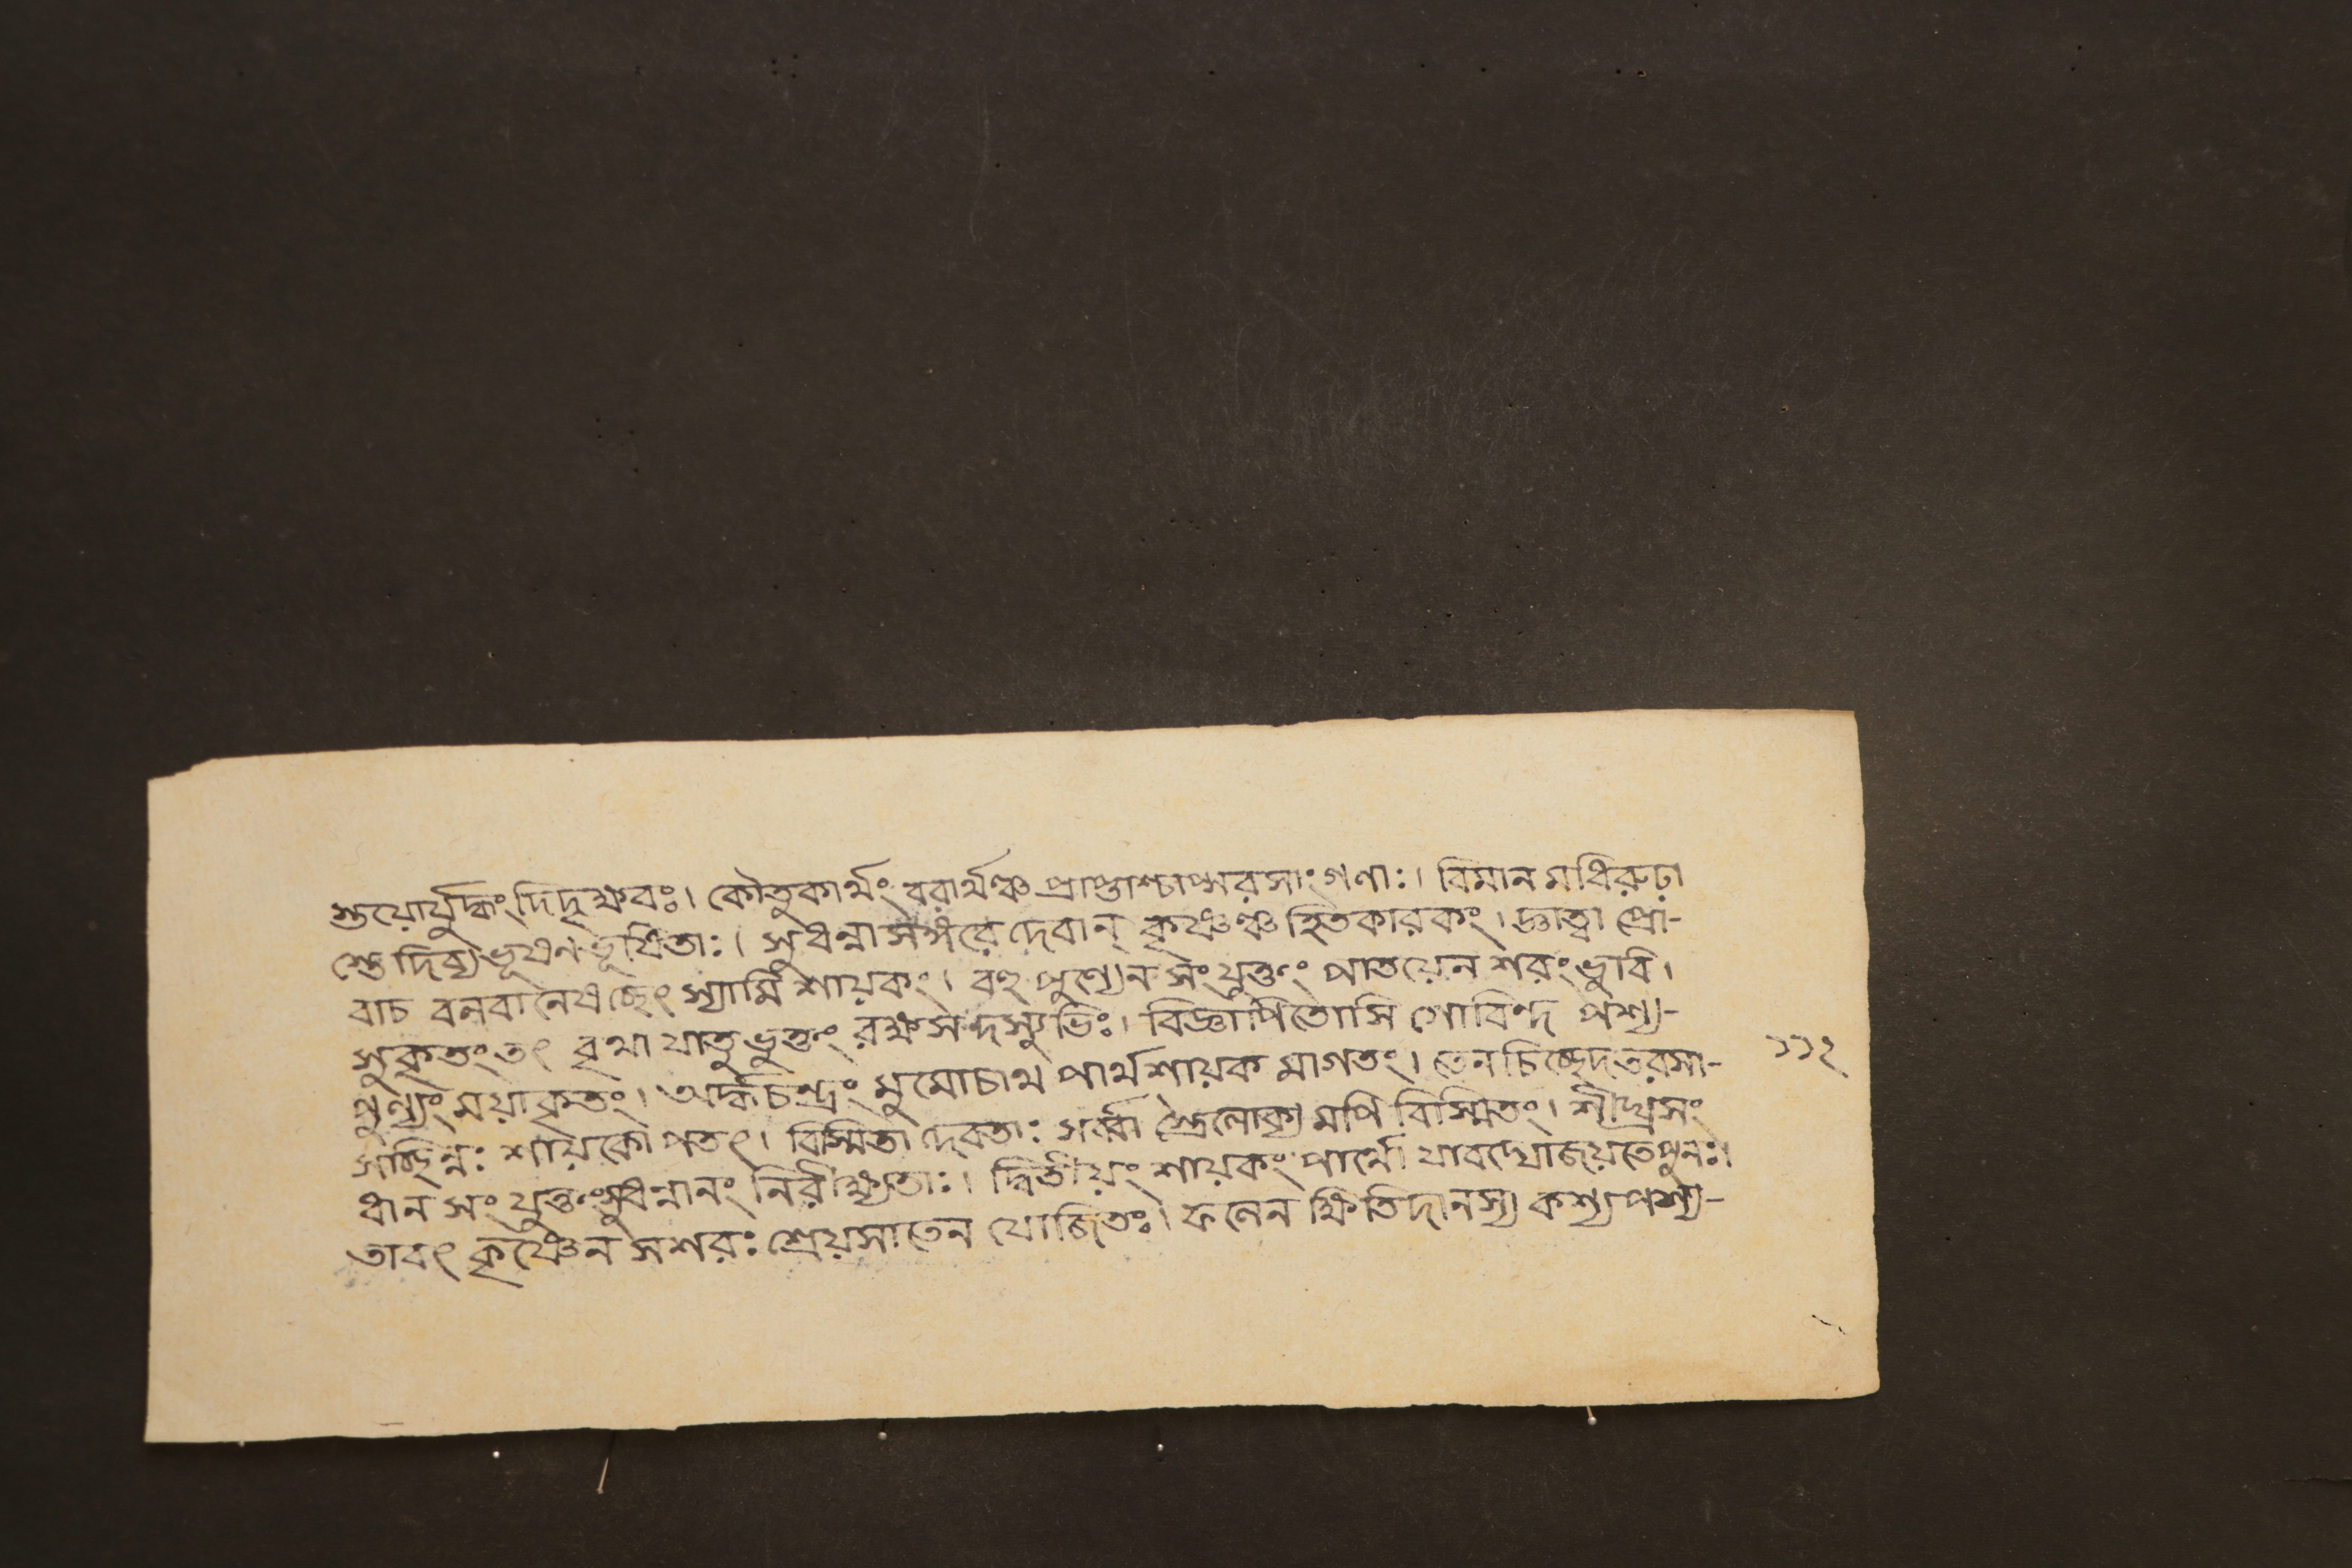 স্তয়োর্যুদ্ধং দিদৃক্ষবঃ। কৌতুকার্থং বরার্থঞ্চ প্রাপ্তাশ্চাপ্সরসাং গণাঃ। বিমান মধিরুঢা
স্তে দিব্য ভূষণ ভূষিতাঃ। সুধন্বা সমরে দেবান্ কৃষ্ণঞ্চ হিতকারকং। জ্ঞাত্বা প্রো-
বাচ বলবা শায়কং। বহু পুণ্যেন সংযুক্তং পাতয়েন শরং ভুবি।
সুকৃতং তৎ বৃথা যাতু ভুক্তং রক্ষস দস্যুভিঃ। বিজ্ঞাপিতোসি গোবিন্দ পশ্য-
পুণ্যং ময়া কৃতং। অর্দ্ধচন্দ্রং মুমোচাথ পার্থ শায়ক মাগতং। তেন চিচ্ছেদ তরসা-
সচ্ছিন্নঃ শায়কো পতৎ। বিস্মিতা দেবতাঃ সর্ব্বা স্ত্রৈলোক্য মপি বিস্মিতং। শীঘ্রসং
ধান সংযুক্তং সুধন্বানং নিরীক্ষ্যতাঃ। দ্বিতীয়ং শায়কং পার্থো যাবদ্যোজয়তে পুনঃ।
তাবৎ কৃষ্ণেন সশরঃ শ্রেয়সা তেন যোজিতঃ। ফলেন ক্ষিতিদানস্য কশ্য পশ্য-
১১২